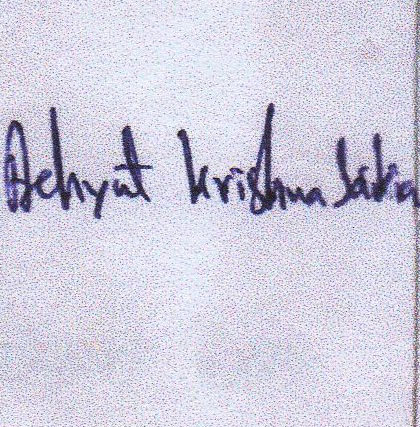 Achyut Krishna Sakia